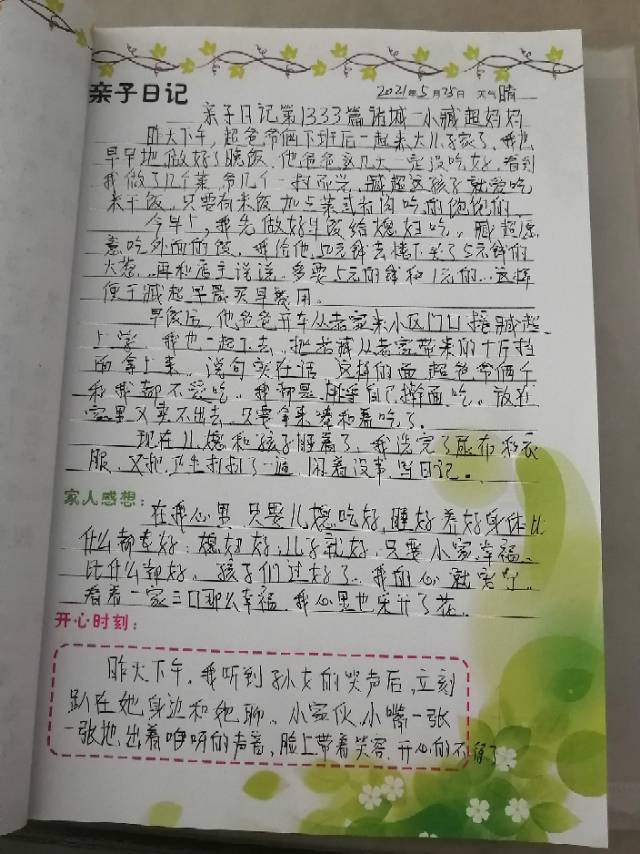 亲子日记 2021年5月25日 天气 晴
亲子日记第1333篇诸城一小臧超妈妈
昨天下午,超爸带俩下班后一起来大儿子家了,我也
早早地做好了晚饭,他爸爸这几天一定没吃好,看到
我做了几个菜,带几个一扫而光,臧超这孩子就爱吃
米干饭,只要有米饭加点菜或有肉吃的饱饱的
今早上,我先做好午饭给媳妇吃,臧超愿
意吃外面的饭,我给他 元钱去楼下买了5元钱的
火烧,再和店主说说,多要5元的钱和1元的,这样
便于臧超早餐买早餐用。
早饭后,他爸爸开车从老家来小区门口接臧超
上学,我也一起下去,把 从老家带来的十斤
面拿上来,说句实在话,这样的面超爸带俩
和我都不爱吃,我都是 自己擀面吃。放在
家里又卖不出去,只要拿来凑和着吃了。
现在儿媳和孩子睡着了,我洗完了尿布和衣
服,又把卫生打扫了一遍,闲着没事,写日记。
家人感想:
在我心里,只要儿媳吃好,睡好,养好身体比
什么都好,媳妇好,儿子就好,只要小家幸福,
比什么都好,孩子们过好了,我的心就宽了,
看着一家三口那么幸福,我心里也乐开了花。
开心时刻:
昨天下午,我听到孙女的哭声后,立刻
趴在她身边和她聊。小家伙,小嘴一张
一张地,出着咿呀的声音,脸上带着笑容,开心的不得了